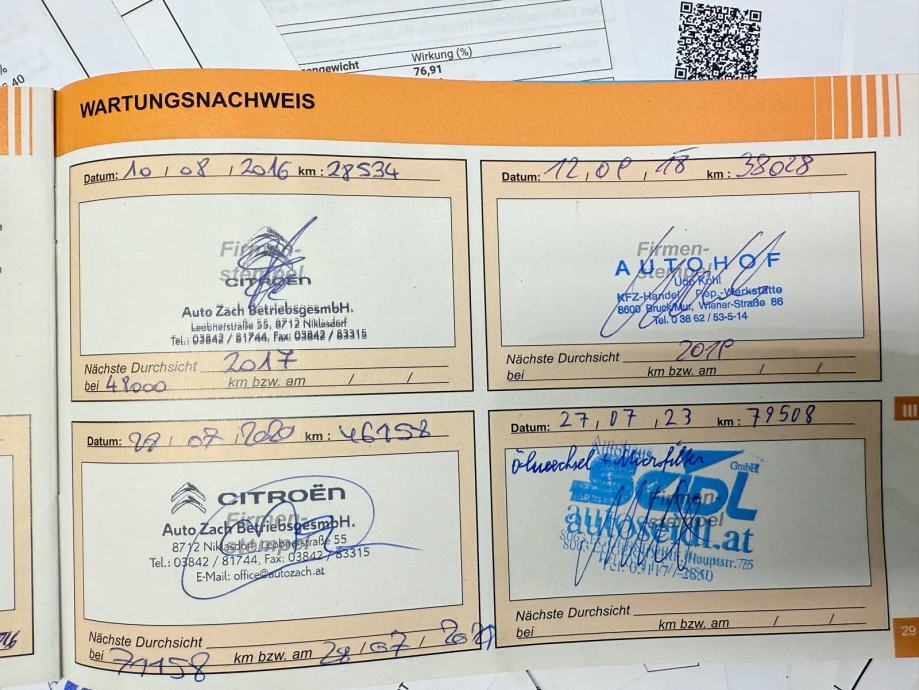 Wirkung (%)
76,91
WARTUNGSNACHWEIS
Datum: 10 / 08 / 2016 km : 28534
Firmen-
stempel
CITROËN
Auto Zach BetriebsgesmbH.
Leobnerstraße 55, 8712 Niklasdorf
Tel.: 03842 / 81744, Fax: 03842 / 83315
Nächste Durchsicht 2017
bei 48000 km bzw. am / /
Datum: 12, 09, 18 km : 38028
Firmen-
stempel
AUTOHOF
Udo Kohl
KFZ-Handel Rep.-Werkstätte
8600 Bruck/Mur, Wiener-Straße 86
Tel. 0 38 62 / 53-5-14
Nächste Durchsicht 2019
bei km bzw. am / /
Datum: 28 / 07 / 2020 km : 46158
CITROËN
Firmen-
stempel
Auto Zach BetriebsgesmbH.
8712 Niklasdorf, Leobnerstraße 55
Tel.: 03842 / 81744, Fax: 03842 / 83315
E-Mail: office@autozach.at
Nächste Durchsicht
bei 71158 km bzw. am 28 / 07 / 2021
Datum: 27, 07, 23 km : 79508
Ölwechsel + Microfilter
Autohaus
SEIDL GmbH
Firmen-
stempel
autoseidl.at
Hauptstr.
Nächste Durchsicht
bei km bzw. am / /
III
29